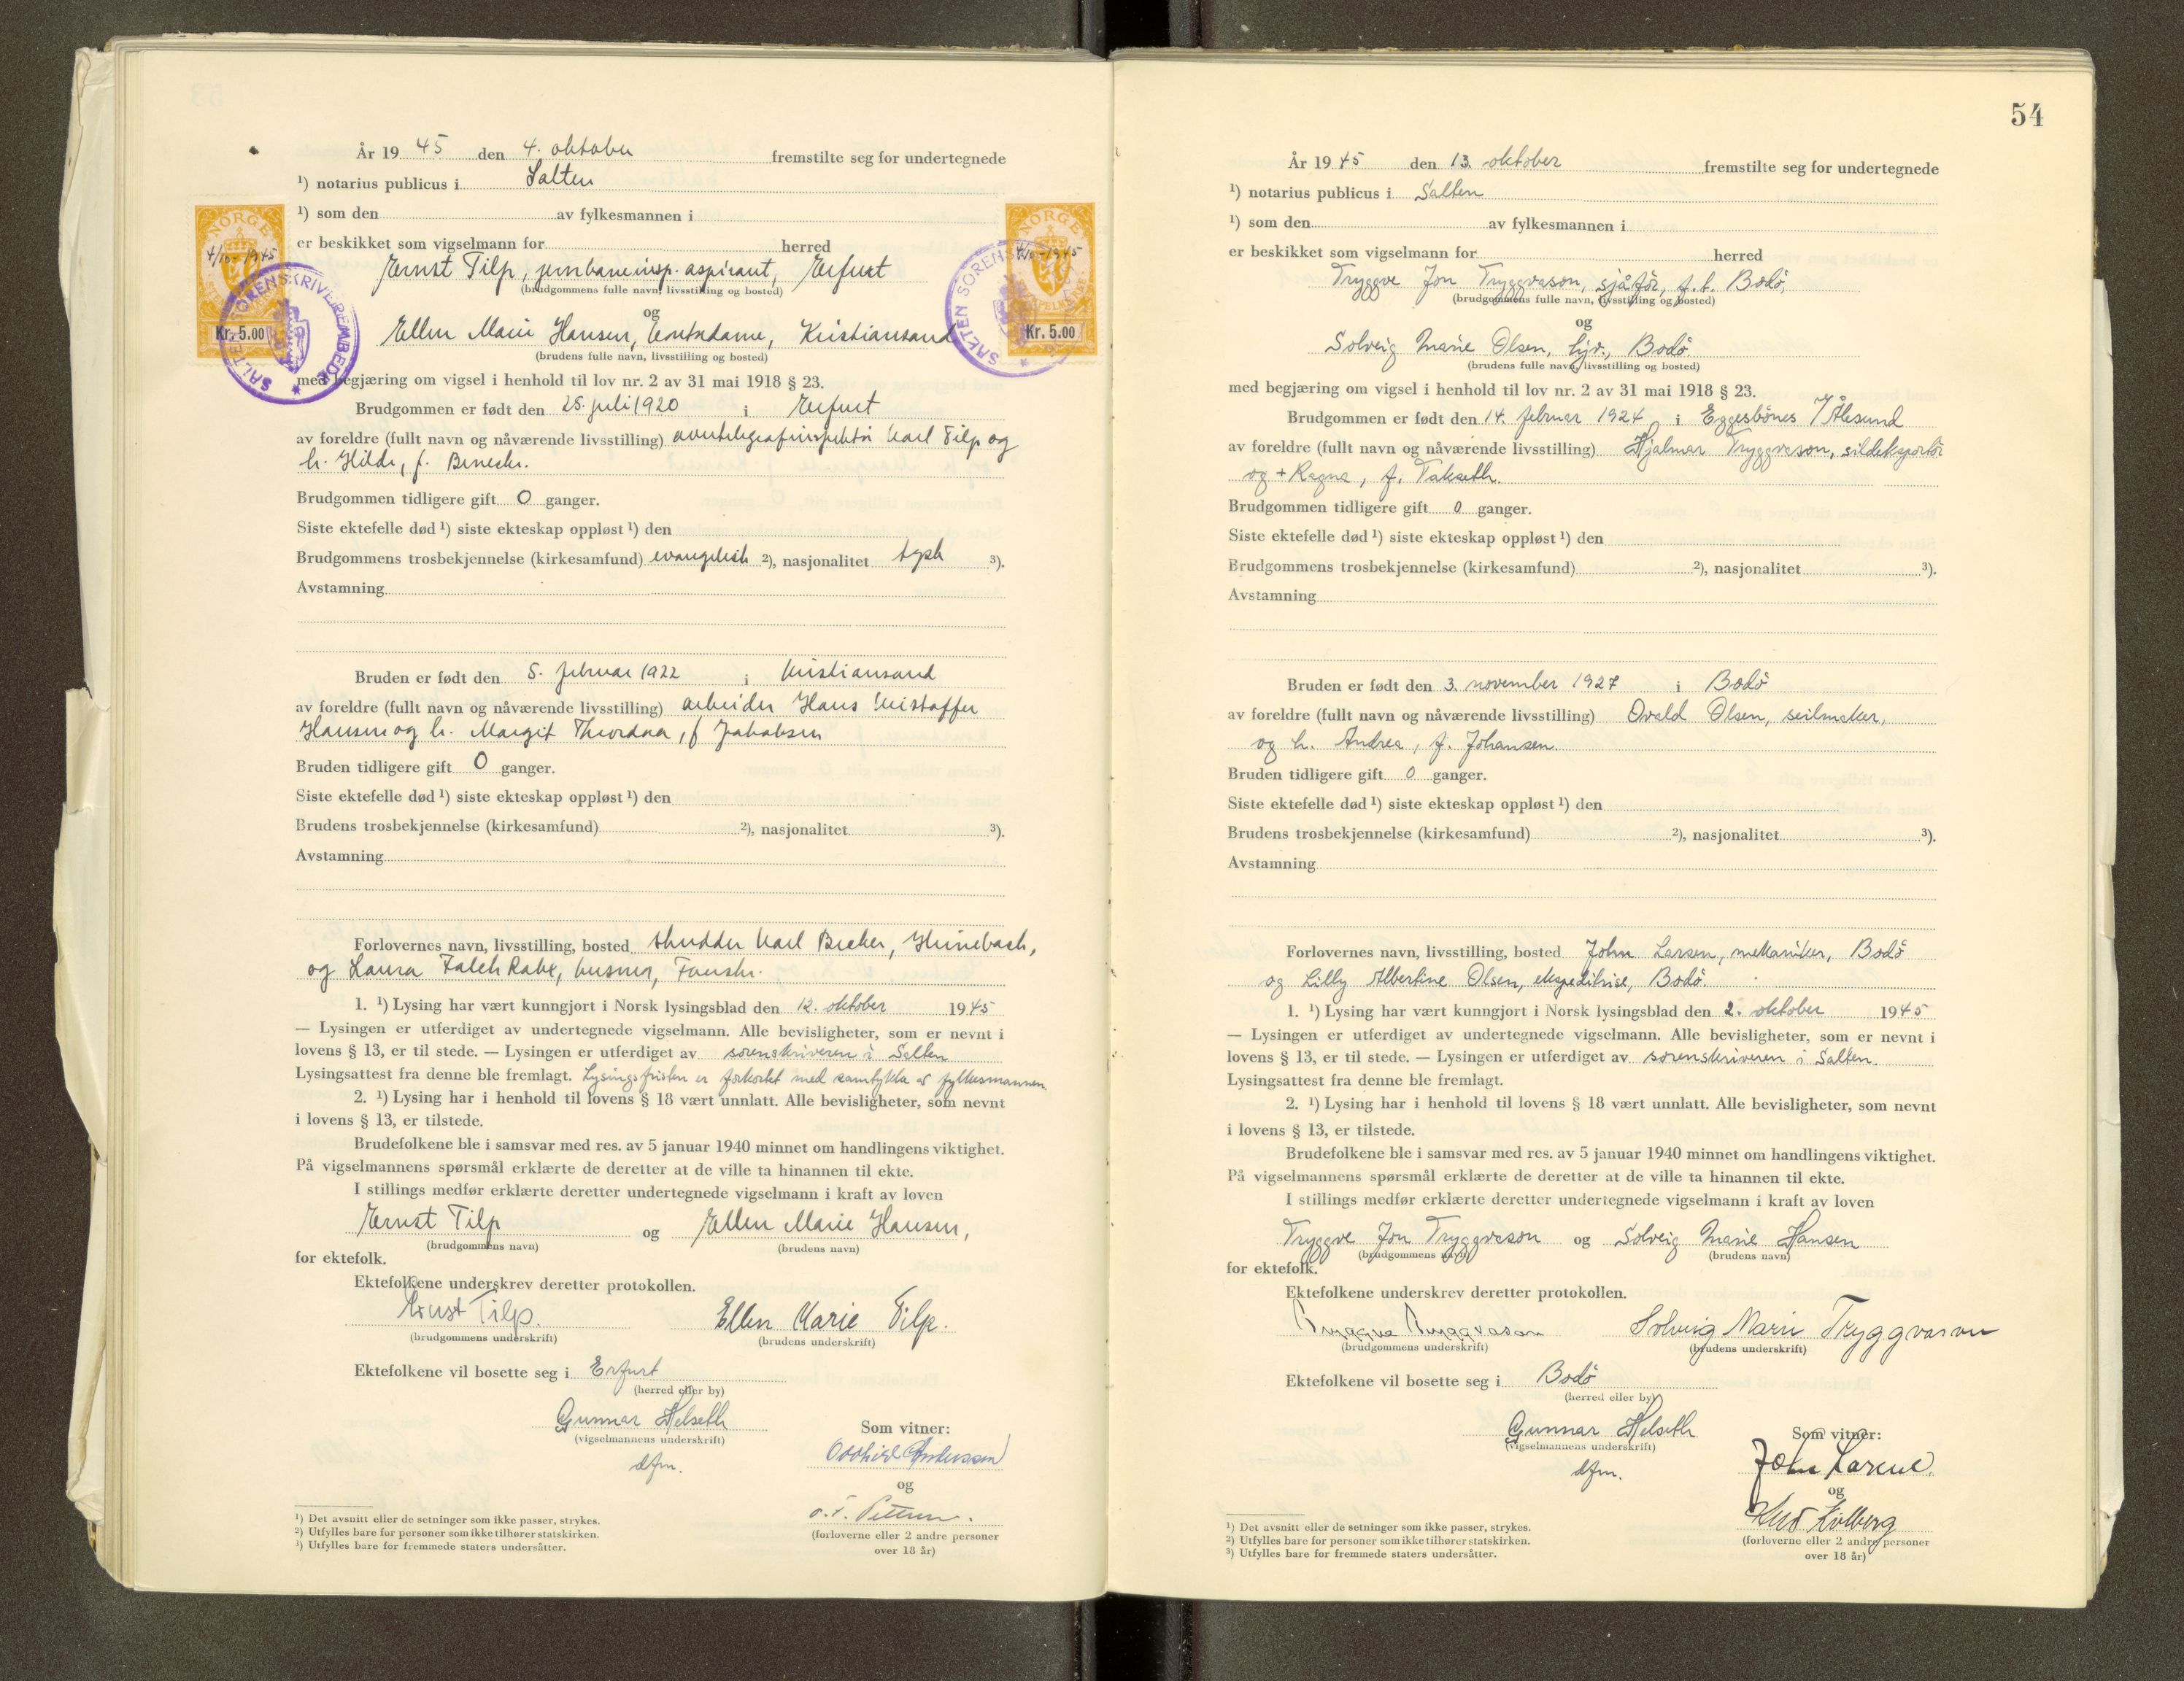 År 19 45 den 4. oktober fremstilte seg for undertegnede
¹) notarius publicus i Salten
¹) som den av fylkesmannen i
er beskikket som vigselmann for herred
NORGE
4/10-1945
Kr. 5.00
SALTEN SORENSKRIVEREMBEDE
NORGE
4/10-1945
Kr. 5.00
SALTEN SORENS
Ernst Tilp, jernbaneinsp. aspirant, Erfurt
(brudgommens fulle navn, livsstilling og bosted)
og
Ellen Marie Hansen, kontordame, Kristiansand
(brudens fulle navn, livsstilling og bosted)
med begjæring om vigsel i henhold til lov nr. 2 av 31 mai 1918 § 23.
Brudgommen er født den 25. juli 1920 i Erfurt
av foreldre (fullt navn og nåværende livsstilling) Karl Tilp og
h. Hilde, f.
Brudgommen tidligere gift 0 ganger.
Siste ektefelle død ¹) siste ekteskap oppløst ¹) den
Brudgommens trosbekjennelse (kirkesamfund) evangelisk ²), nasjonalitet tysk ³).
Avstamning
Bruden er født den 5. februar 1922 i Kristiansand
av foreldre (fullt navn og nåværende livsstilling) arbeider Hans Kristoffer
Hansen og h. Margit f. Jakobsen
Bruden tidligere gift 0 ganger.
Siste ektefelle død ¹) siste ekteskap oppløst ¹) den
Brudens trosbekjennelse (kirkesamfund) ²), nasjonalitet ³).
Avstamning
Forlovernes navn, livsstilling, bosted skredder Karl Becker, Heinebach,
og Laura Falch Rabe, husmor, Fauske.
1. ¹) Lysing har vært kunngjort i Norsk lysingsblad den 12. oktober 1945
— Lysingen er utferdiget av undertegnede vigselmann. Alle bevisligheter, som er nevnt i
lovens § 13, er til stede. — Lysingen er utferdiget av sorenskriveren i Salten
Lysingsattest fra denne ble fremlagt. Lysingsfristen er forkortet med samtykke av fylkesmannen
2. ¹) Lysing har i henhold til lovens § 18 vært unnlatt. Alle bevisligheter, som nevnt
i lovens § 13, er tilstede.
Brudefolkene ble i samsvar med res. av 5 januar 1940 minnet om handlingens viktighet.
På vigselmannens spørsmål erklærte de deretter at de ville ta hinannen til ekte.
I stillings medfør erklærte deretter undertegnede vigselmann i kraft av loven
Ernst Tilp og Ellen Marie Hansen,
(brudgommens navn) (brudens navn)
for ektefolk.
Ektefolkene underskrev deretter protokollen.
Ernst Tilp. Ellen Marie Tilp.
(brudgommens underskrift) (brudens underskrift)
Ektefolkene vil bosette seg i Erfurt
(herred eller by)
Gunnar Helseth
(vigselmannens underskrift)
dfm.
Som vitner:
Oddhild Andersson
og
(forloverne eller 2 andre personer
over 18 år)
¹) Det avsnitt eller de setninger som ikke passer, strykes.
²) Utfylles bare for personer som ikke tilhører statskirken.
³) Utfylles bare for fremmede staters undersåtter.
54
År 19 45 den 13. oktober fremstilte seg for undertegnede
¹) notarius publicus i Salten
¹) som den av fylkesmannen i
er beskikket som vigselmann for herred
Tryggve Jon Tryggvason, sjåfør, f.t. Bodö,
(brudgommens fulle navn, livsstilling og bosted)
og
Solveig Marie Olsen, hjv., Bodö
(brudens fulle navn, livsstilling og bosted)
med begjæring om vigsel i henhold til lov nr. 2 av 31 mai 1918 § 23.
Brudgommen er født den 14. februar 1924 i Eggesbönes / Ålesund
av foreldre (fullt navn og nåværende livsstilling) Hjalmar Tryggvason, sildeksportör
og + Ragna, f. Takseth.
Brudgommen tidligere gift 0 ganger.
Siste ektefelle død ¹) siste ekteskap oppløst ¹) den
Brudgommens trosbekjennelse (kirkesamfund) ²), nasjonalitet ³).
Avstamning
Bruden er født den 3. november 1927 i Bodö
av foreldre (fullt navn og nåværende livsstilling) Ovald Olsen, seilmaker,
og h. Andrea, f. Johansen.
Bruden tidligere gift 0 ganger.
Siste ektefelle død ¹) siste ekteskap oppløst ¹) den
Brudens trosbekjennelse (kirkesamfund) ²), nasjonalitet ³).
Avstamning
Forlovernes navn, livsstilling, bosted John Larsen, mekaniker, Bodö
og Lilly Albertine Olsen, ekspeditrise, Bodö.
1. ¹) Lysing har vært kunngjort i Norsk lysingsblad den 2. oktober 1945
— Lysingen er utferdiget av undertegnede vigselmann. Alle bevisligheter, som er nevnt i
lovens § 13, er til stede. — Lysingen er utferdiget av sorenskriveren i Salten.
Lysingsattest fra denne ble fremlagt.
2. ¹) Lysing har i henhold til lovens § 18 vært unnlatt. Alle bevisligheter, som nevnt
i lovens § 13, er tilstede.
Brudefolkene ble i samsvar med res. av 5 januar 1940 minnet om handlingens viktighet.
På vigselmannens spørsmål erklærte de deretter at de ville ta hinannen til ekte.
I stillings medfør erklærte deretter undertegnede vigselmann i kraft av loven
Tryggve Jon Tryggvason og Solveig Marie Hansen
(brudgommens navn) (brudens navn)
for ektefolk.
Ektefolkene underskrev deretter protokollen.
Tryggve Tryggvason Solveig Marie Tryggvason
(brudgommens underskrift) (brudens underskrift)
Ektefolkene vil bosette seg i Bodö
(herred eller by)
Gunnar Helseth
(vigselmannens underskrift)
dfm.
Som vitner:
John Larsen.
og
(forloverne eller 2 andre personer
over 18 år)
¹) Det avsnitt eller de setninger som ikke passer, strykes.
²) Utfylles bare for personer som ikke tilhører statskirken.
³) Utfylles bare for fremmede staters undersåtter.